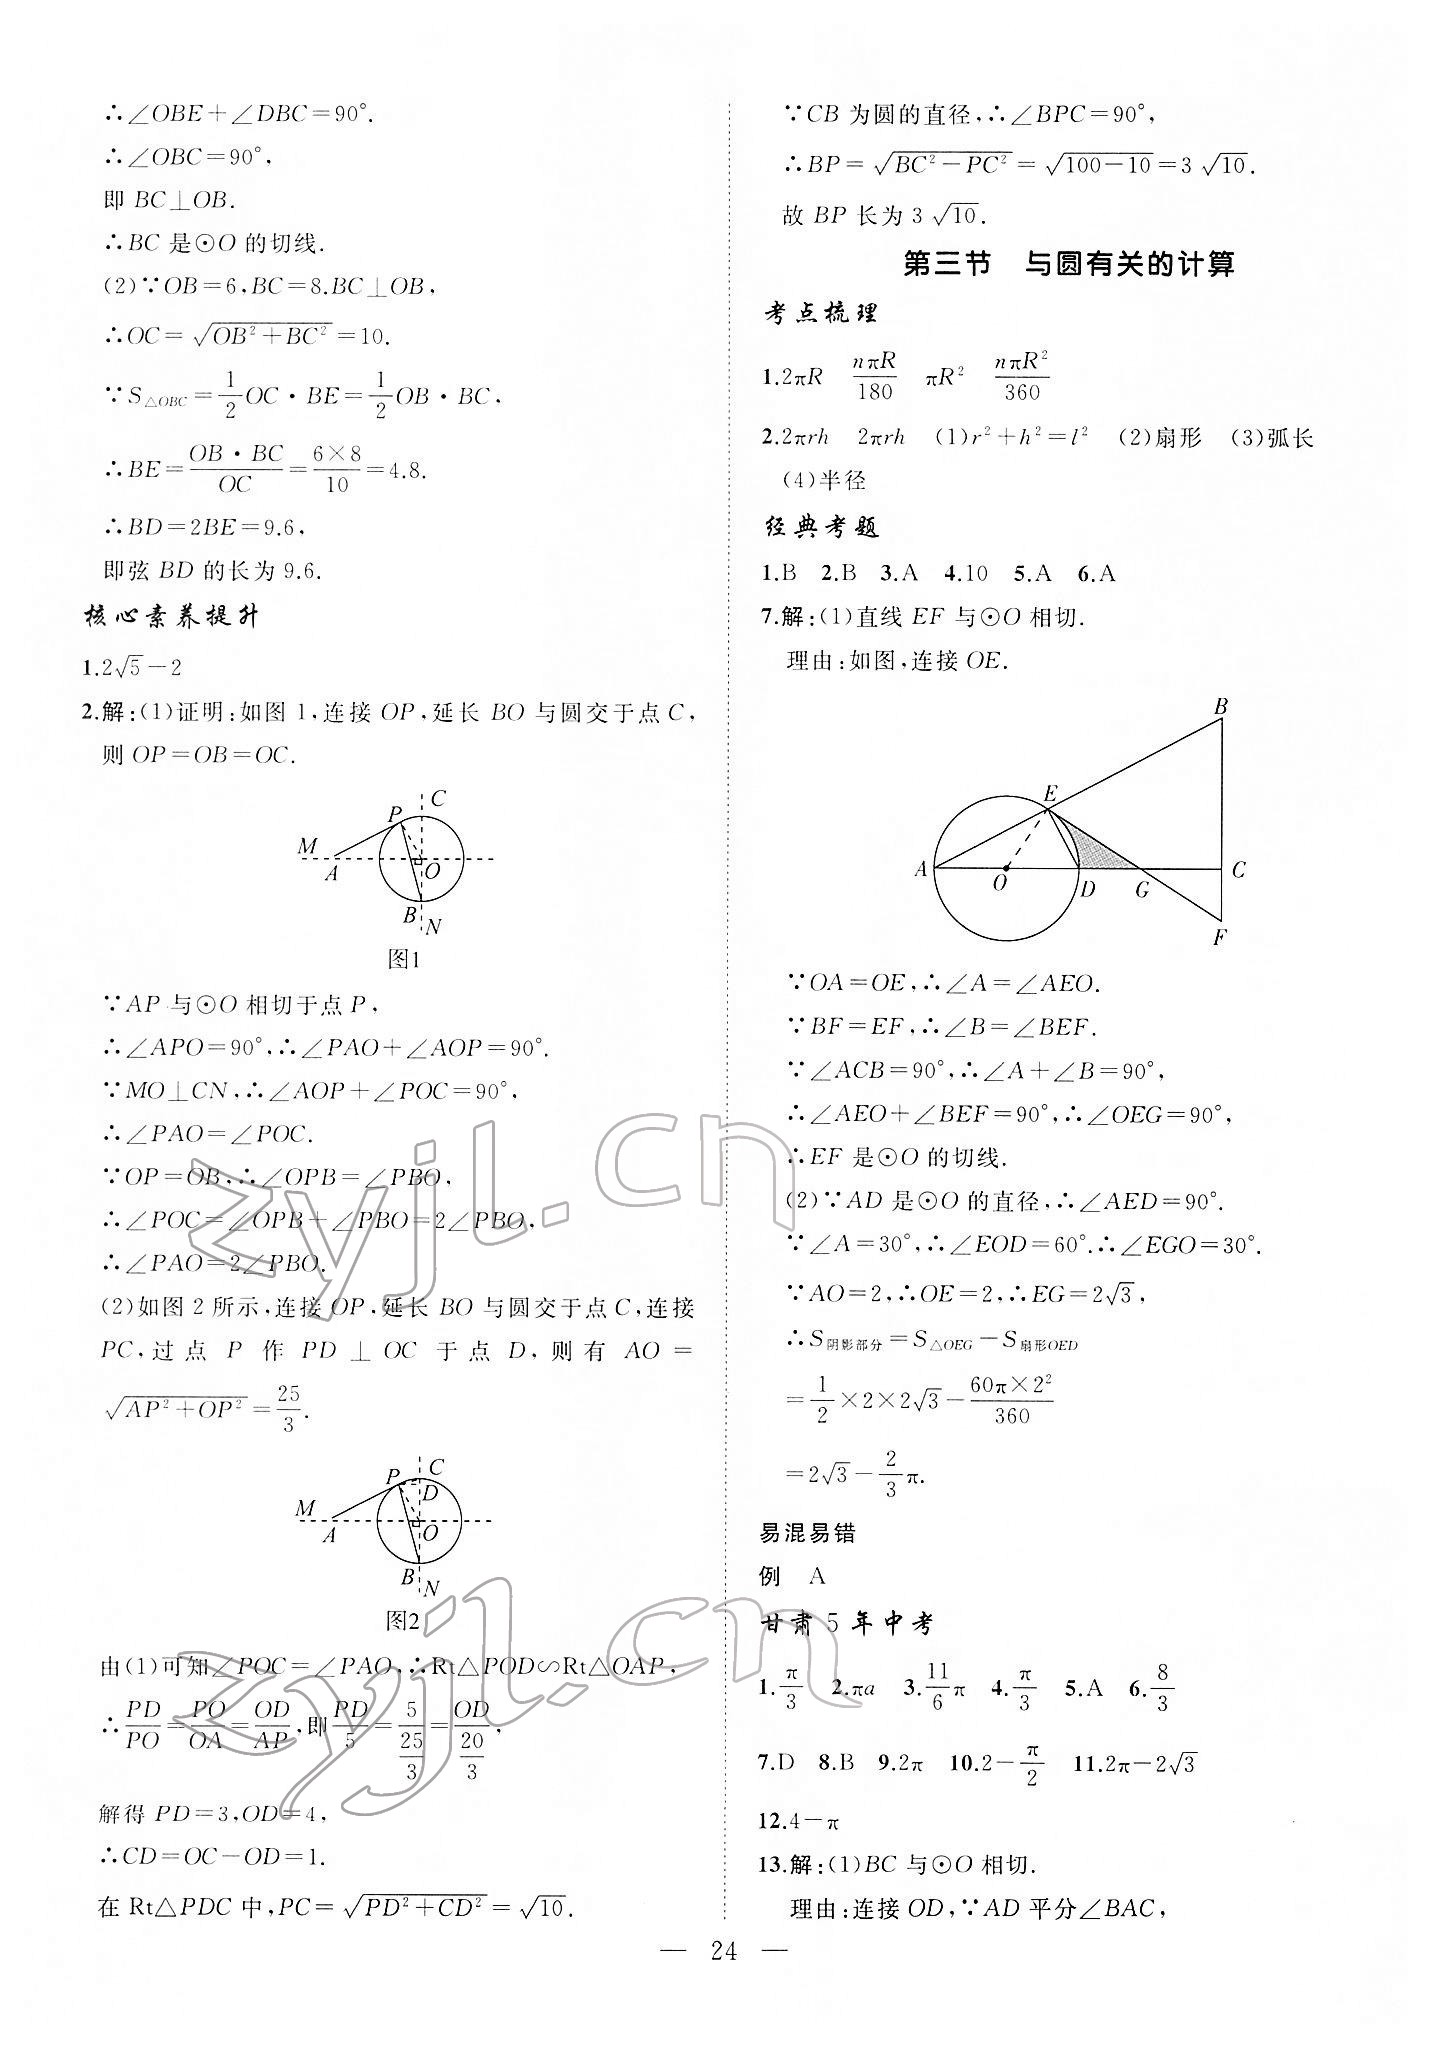 ∴∠OBE+∠DBC=90°.
∴∠OBC=90°,
即 BC⊥OB.
∴BC 是⊙O 的切线.
(2)∵OB=6,BC=8.BC⊥OB,
∴OC=√(OB²+BC²)=10.
∵S△OBC=1/2 OC·BE=1/2 OB·BC,
∴BE=OB·BC/OC=6×8/10=4.8.
∴BD=2BE=9.6,
即弦 BD 的长为 9.6.
核心素养提升
1.2√5-2
2.解:(1)证明:如图 1,连接 OP,延长 BO 与圆交于点 C,
则 OP=OB=OC.
C
P
M
A
O
B
N
图1
∵AP 与⊙O 相切于点 P,
∴∠APO=90°,∴∠PAO+∠AOP=90°.
∵MO⊥CN,∴∠AOP+∠POC=90°,
∴∠PAO=∠POC.
∵OP=OB,∴∠OPB=∠PBO,
∴∠POC=∠OPB+∠PBO=2∠PBO,
∴∠PAO=2∠PBO.
(2)如图 2 所示,连接 OP,延长 BO 与圆交于点 C,连接
PC,过点 P 作 PD⊥OC 于点 D,则有 AO=
√(AP²+OP²)=25/3.
C
P
D
M
A
O
B
N
图2
由(1)可知∠POC=∠PAO,∴Rt△POD∽Rt△OAP,
∴PD/PO=PO/OA=OD/AP,即PD/5=5/(25/3)=OD/(20/3),
解得 PD=3,OD=4,
∴CD=OC-OD=1.
在 Rt△PDC 中,PC=√(PD²+CD²)=√10.
∵CB 为圆的直径,∴∠BPC=90°,
∴BP=√(BC²-PC²)=√(100-10)=3√10.
故 BP 长为 3√10.
第三节 与圆有关的计算
考点梳理
1.2πR nπR/180 πR² nπR²/360
2.2πrh 2πrh (1)r²+h²=l² (2)扇形 (3)弧长
(4)半径
经典考题
1.B 2.B 3.A 4.10 5.A 6.A
7.解:(1)直线 EF 与⊙O 相切.
理由:如图,连接 OE.
B
E
A
O
D
G
C
F
∵OA=OE,∴∠A=∠AEO.
∵BF=EF,∴∠B=∠BEF.
∵∠ACB=90°,∴∠A+∠B=90°,
∴∠AEO+∠BEF=90°,∴∠OEG=90°,
∴EF 是⊙O 的切线.
(2)∵AD 是⊙O 的直径,∴∠AED=90°.
∵∠A=30°,∴∠EOD=60°.∴∠EGO=30°.
∵AO=2,∴OE=2,∴EG=2√3,
∴S阴影部分=S△OEG-S扇形OED
=1/2×2×2√3-60π×2²/360
=2√3-2/3π.
易混易错
例 A
甘肃 5 年中考
1.π/3 2.πa 3.11/6π 4.π/3 5.A 6.8/3
7.D 8.B 9.2π 10.2-π/2 11.2π-2√3
12.4-π
13.解:(1)BC 与⊙O 相切.
理由:连接 OD,∵AD 平分∠BAC,
— 24 —
zyjl.cn
zyjl.cn